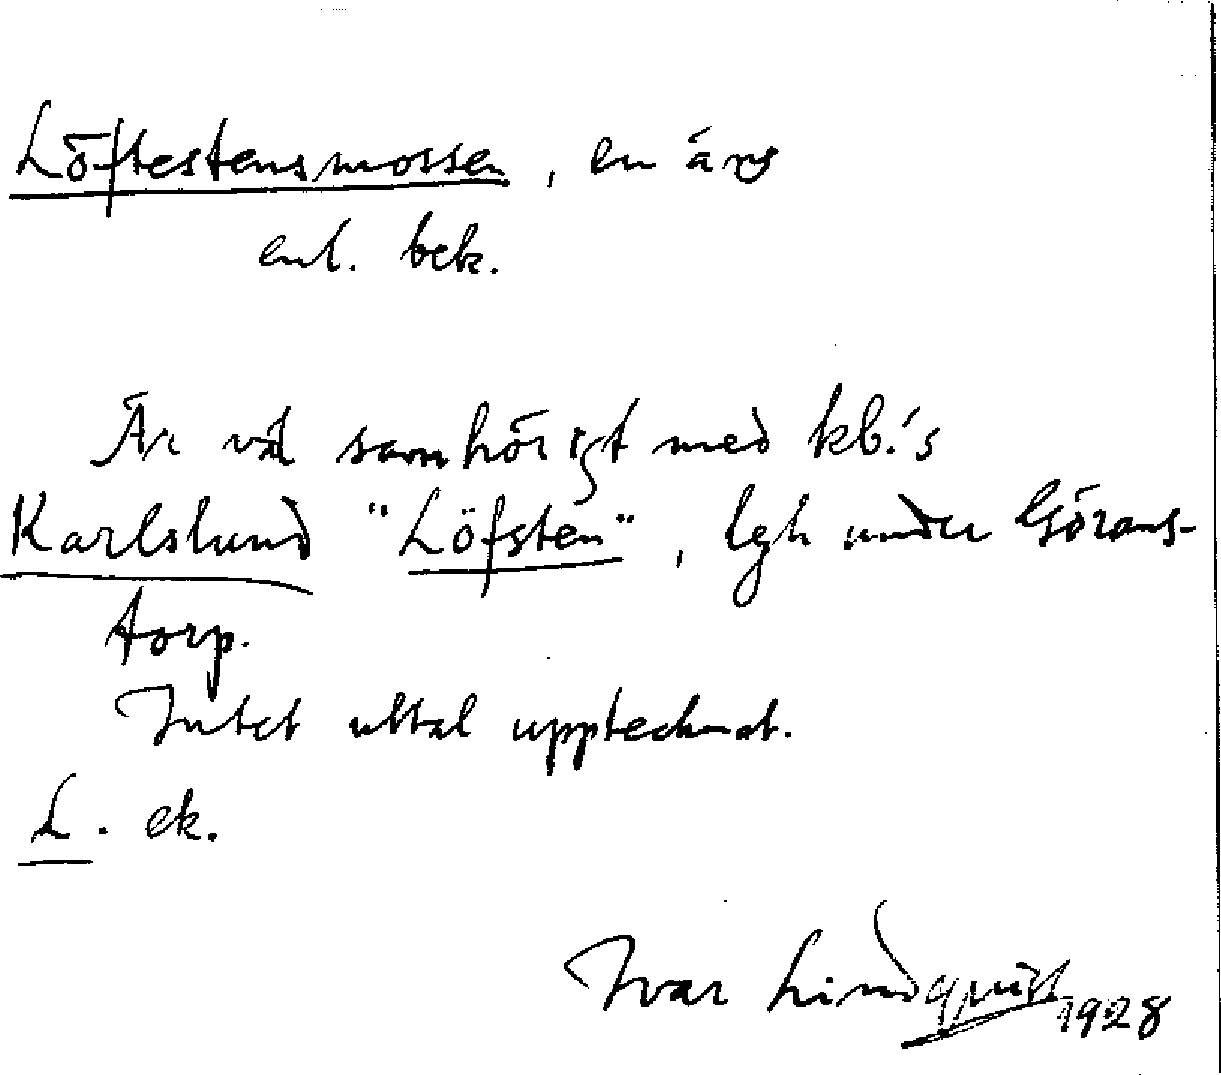 Löftestensmossen, en äng
enl. bek.
Är väl samhörigt med kb.'s
Karlslund "Löfsten", lgh under Görans-
torp.
Intet uttal upptecknat.
L. ek.
Ivar Lindquist 1928